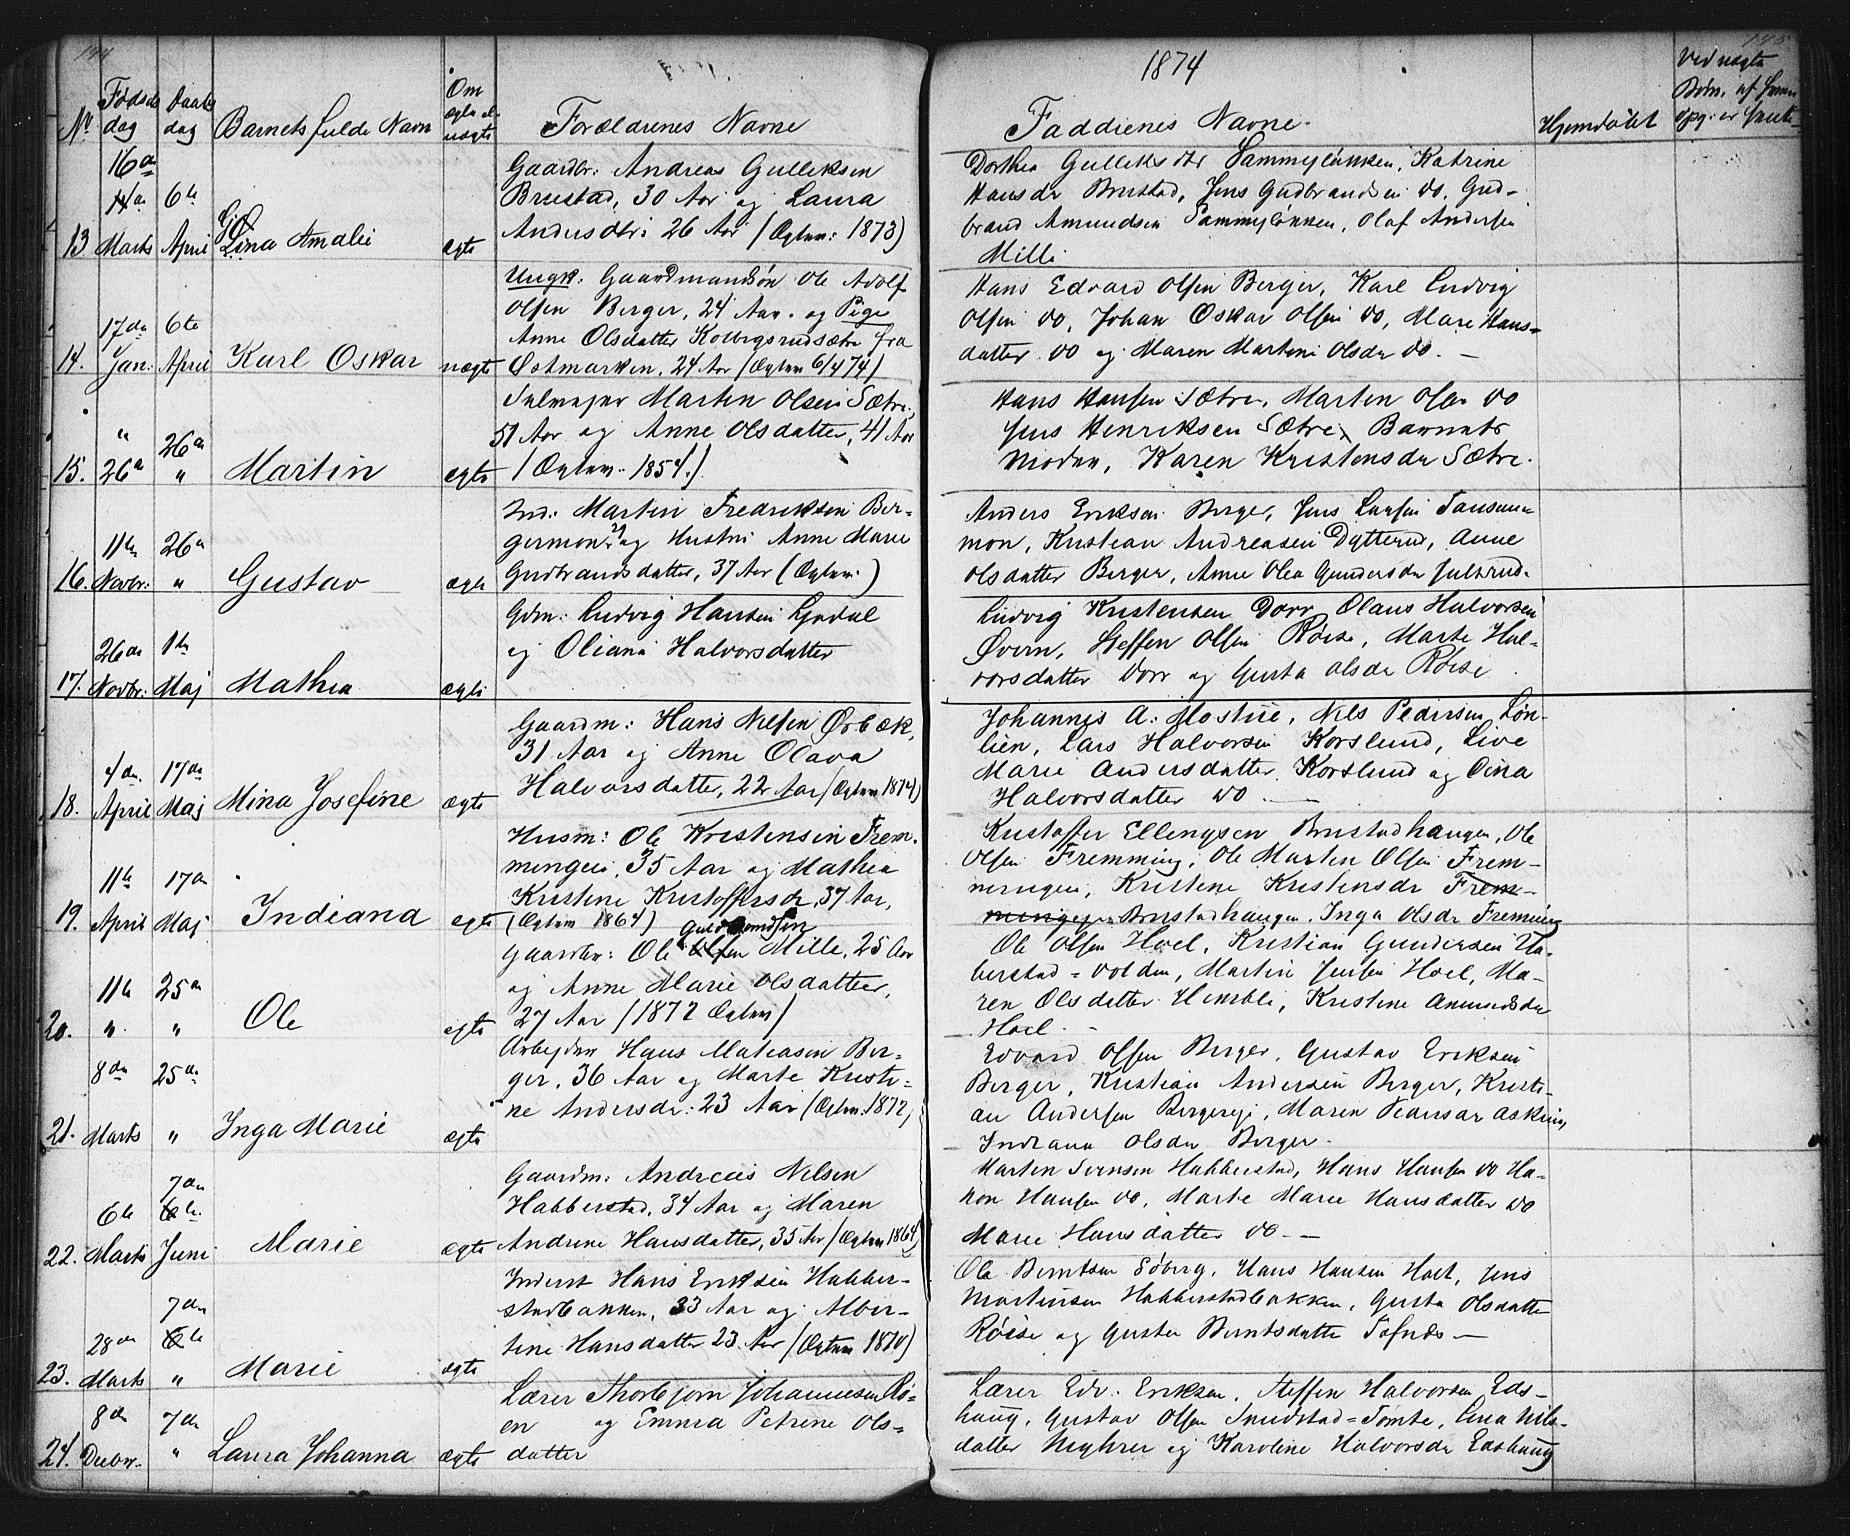 144
1874
145
Nr Fødsels dag Daabs dag Barnets fulde Navn Om ægte el. uægte Forældrenes Navne
Faddrenes Navne Hjemdøbt Ved uægte Børn
16de
11te 6te
13 Marts April Lina Amalie ægte
Gaardbr: Andreas Gulliksen
Brustad, 30 Aar og Laura
Andersdtr: 26 Aar (Ægtev: 1873)
Dorthea Gulliksdtr Sammyløkken, Katrine
Hansdr Brustad, Jens Gudbrandsen do, Gud-
brand Amundsen Sammyløkken, Olaf Andersen
Mille
17de 6te
14. Jan: April Karl Oskar uægte
Ungk: Gaardmandsøn Ole Adolf
Olsen Berger, 24 Aar. og Pige
Anne Olsdatter Kolbigrudsætre fra
Østmarken, 24 Aar (Ægtev 6/4 74)
Hans Edvard Olsen Berger, Karl Ludvig
Olsen do, Johan Oskar Olsen do, Mare Hans-
datter do og Maren Martine Olsdr do. —
" 26de
15. 26de " Martin ægte
Selveier Martin Olsen Sætre,
51 Aar og Anne Olsdatter, 41 Aar
(Ægtev: 1854.)
Hans Hansen Sætre, Martin Olsen do
Jens Henriksen Sætre, Barnets
Moder, Karen Kristensdr Sætre.
11te 26de
16. Novbr: " Gustav ægte
Ind: Martin Fredriksen Ber-
germon, og Hustru Anne Marie
Gudbrandsdatter, 37 Aar (Ægtev: )
Anders Eriksen Berger, Jens Larsen Tansem-
mon, Kristian Andreasen Dytterud, Anne
Olsdatter Berger, Anne Olea Gundersdr Julsrud.
26de 1ste
17. Novbr: Maj Mathea ægte
Gdm: Ludvig Hansen Lyndal
og Oliana Halvorsdatter
Ludvig Kristensen Dorr, Olaus Halvorsen
Øvern, Steffen Olsen Røise, Marte Hal-
vorsdatter Dorr og Gusta Olsdr Røise
4de 17de
18. April Maj Mina Josefine ægte
Gaardm: Hans Nilsen Ørbæk,
31 Aar og Anne Olava
Halvorsdatter, 22 Aar (Ægtev 1874)
Johannes A. Mostue, Nils Pedersen Løn-
lien, Lars Halvorsen Korslund, Live
Marie Andersdatter Korslund og Dina
Halvorsdatter do. —
11te 17de
19. April Maj Indiana ægte
Husm: Ole Kristensen Frem-
mingen, 35 Aar og Mathea
Kristine Kristoffersdr, 37 Aar,
(Ægtev 1864)
Kristoffer Ellengsen Brustadhaugen, Ole
Olsen Fremming, Ole Martin Olsen Frem-
mingen, Kristine Kristensdr Frem-
mingen Brustadhaugen, Inga Olsdr Fremming
11te 25de
20. " " Ole ægte
Gaardbr: Ole Olsen Gulbrandsen Mille, 25 Aar
og Anne Marie Olsdatter,
27 Aar (1872 Ægtev)
Ole Olsen Hoel, Kristian Gundersen Ha-
berstad-volden, Martin Jensen Hoel, Ma-
ren Olsdatter Himble, Kristine Amundsdr
Hoel. —
8de 25de
21. Marts " Inga Marie ægte
Arbejder Hans Mateasen Ber-
ger, 36 Aar og Marte Kristi-
ne Andersdr: 23 Aar (Ægtev: 1872)
Edvard Olsen Berger, Gustav Eriksen
Berger, Kristian Andersen Berger, Kristi-
an Andersen Bergereje, Maren Pedersdr Asking,
Indiana Olsdr Berger.
7de
6te 6te
22. Marts Juni Marie ægte
Gaardm: Andreas Nilsen
Habberstad, 34 Aar og Maren
Andrine Hansdatter, 35 Aar (Ægtev 1864)
Marten Svensen Habberstad, Hans Hansen do Ha-
kon Hansen do, Marte Marie Hansdatter do
Marie Hansdatter do. —
7de
28de 6te
23. Marts " Marie ægte
Inderst Hans Eriksen Habber-
stadbakken, 33 Aar og Alber-
tine Hansdatter 23 Aar (Ægtev 1870)
Ole Berntsen Søberg, Hans Hansen Hoel, Jens
Martinsen Habberstadbakken, Gusta Olsdatter
Røise og Gustea Berntsdatter Tofnæs —
8de 7de
24. Decbr. " Laura Johanna ægte
Lærer Thorbjørn Johannesen Rø-
en og Emma Petrine Ols-
datter
Lærer Edv. Eriksen, Steffen Halvorsen Eds-
haug, Gustav Olsen Smidstad-Tomte, Lina Nils-
datter Myhrer og Karoline Halvorsdr Edshaug